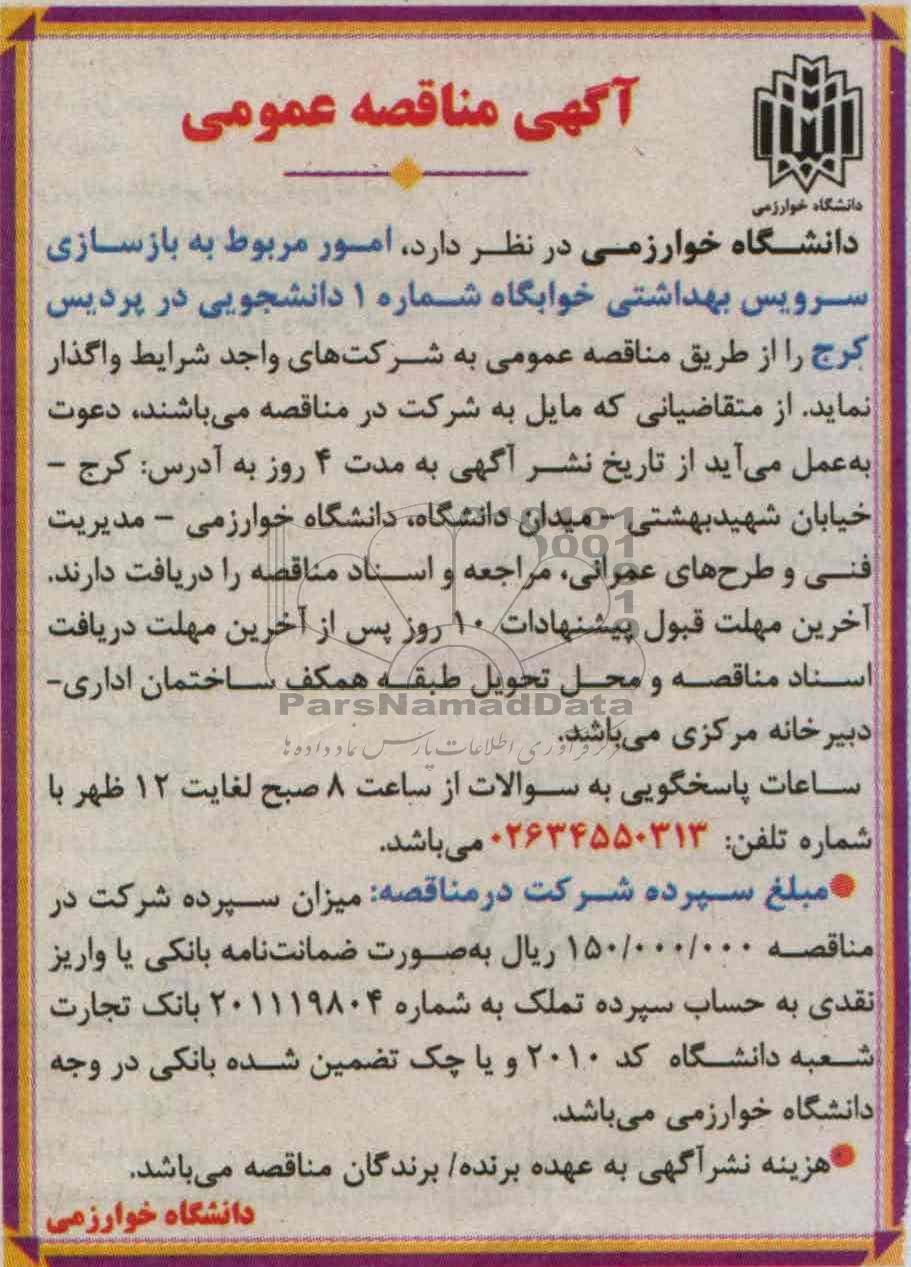 آگهی مناقصه عمومی
دانشگاه خوارزمی
دانشگاه خوارزمی در نظر دارد، امور مربوط به بازسازی
سرویس بهداشتی خوابگاه شماره ۱ دانشجویی در پردیس
کرج را از طریق مناقصه عمومی به شرکت‌های واجد شرایط واگذار
نماید. از متقاضیانی که مایل به شرکت در مناقصه می‌باشند، دعوت
به‌عمل می‌آید از تاریخ نشر آگهی به مدت ۴ روز به آدرس: کرج –
خیابان شهیدبهشتی – میدان دانشگاه، دانشگاه خوارزمی – مدیریت
فنی و طرح‌های عمرانی، مراجعه و اسناد مناقصه را دریافت دارند.
آخرین مهلت قبول پیشنهادات ۱۰ روز پس از آخرین مهلت دریافت
اسناد مناقصه و محل تحویل طبقه همکف ساختمان اداری-
دبیرخانه مرکزی می‌باشد.
ParsNamadData
ساعات پاسخگویی به سوالات از ساعت ۸ صبح لغایت ۱۲ ظهر با
شماره تلفن: ۰۲۶۳۴۵۵۰۳۱۳ می‌باشد.
●مبلغ سپرده شرکت درمناقصه: میزان سپرده شرکت در
مناقصه ۱۵۰/۰۰۰/۰۰۰ ریال به‌صورت ضمانت‌نامه بانکی یا واریز
نقدی به حساب سپرده تملک به شماره ۲۰۱۱۱۹۸۰۴ بانک تجارت
شعبه دانشگاه کد ۲۰۱۰ و یا چک تضمین شده بانکی در وجه
دانشگاه خوارزمی می‌باشد.
●هزینه نشرآگهی به عهده برنده/ برندگان مناقصه می‌باشد.
دانشگاه خوارزمی